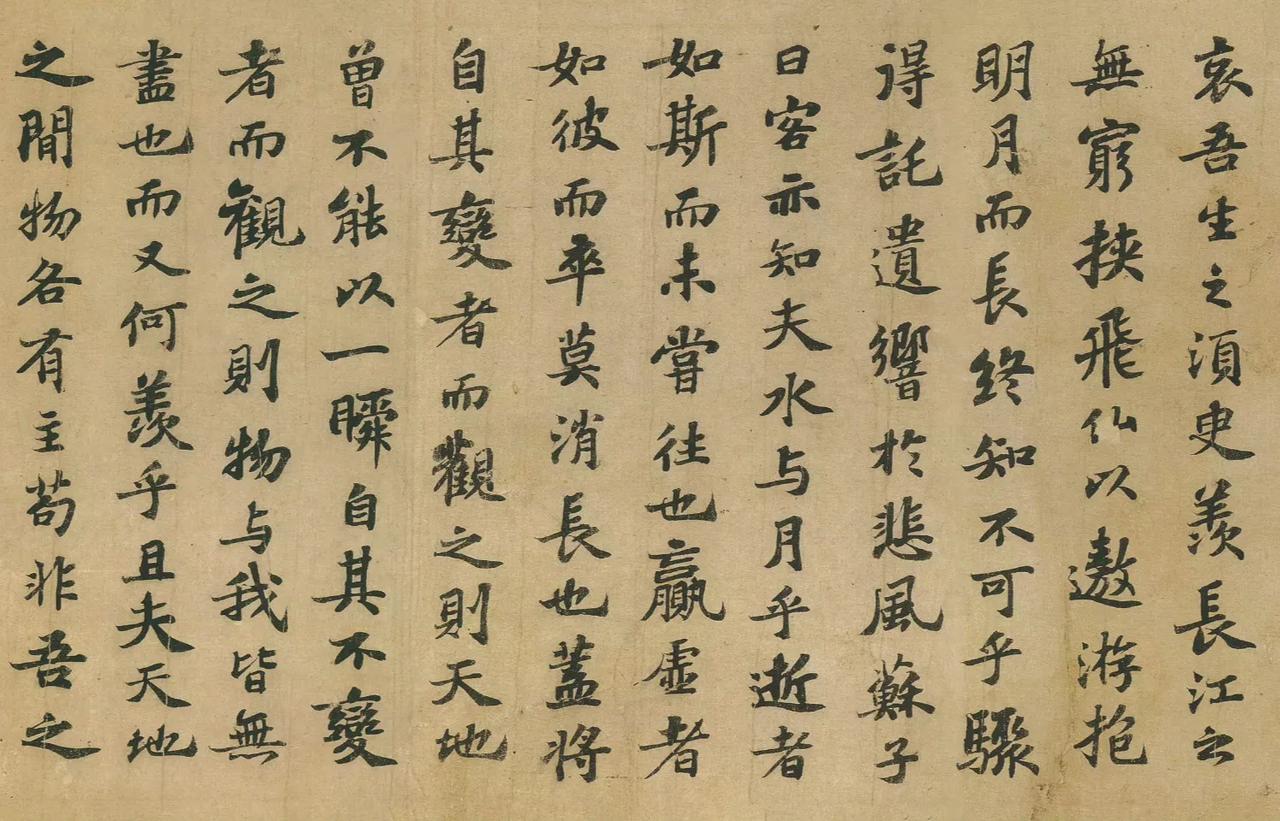 哀吾生之須臾羨長江之
無窮挾飛仙以遨游抱
明月而長終知不可乎驟
得託遺響於悲風蘇子
曰客亦知夫水与月乎逝者
如斯而未嘗往也贏虛者
如彼而卒莫消長也蓋將
自其變者而觀之則天地
曾不能以一瞬自其不變
者而觀之則物与我皆無
盡也而又何羨乎且夫天地
之間物各有主苟非吾之